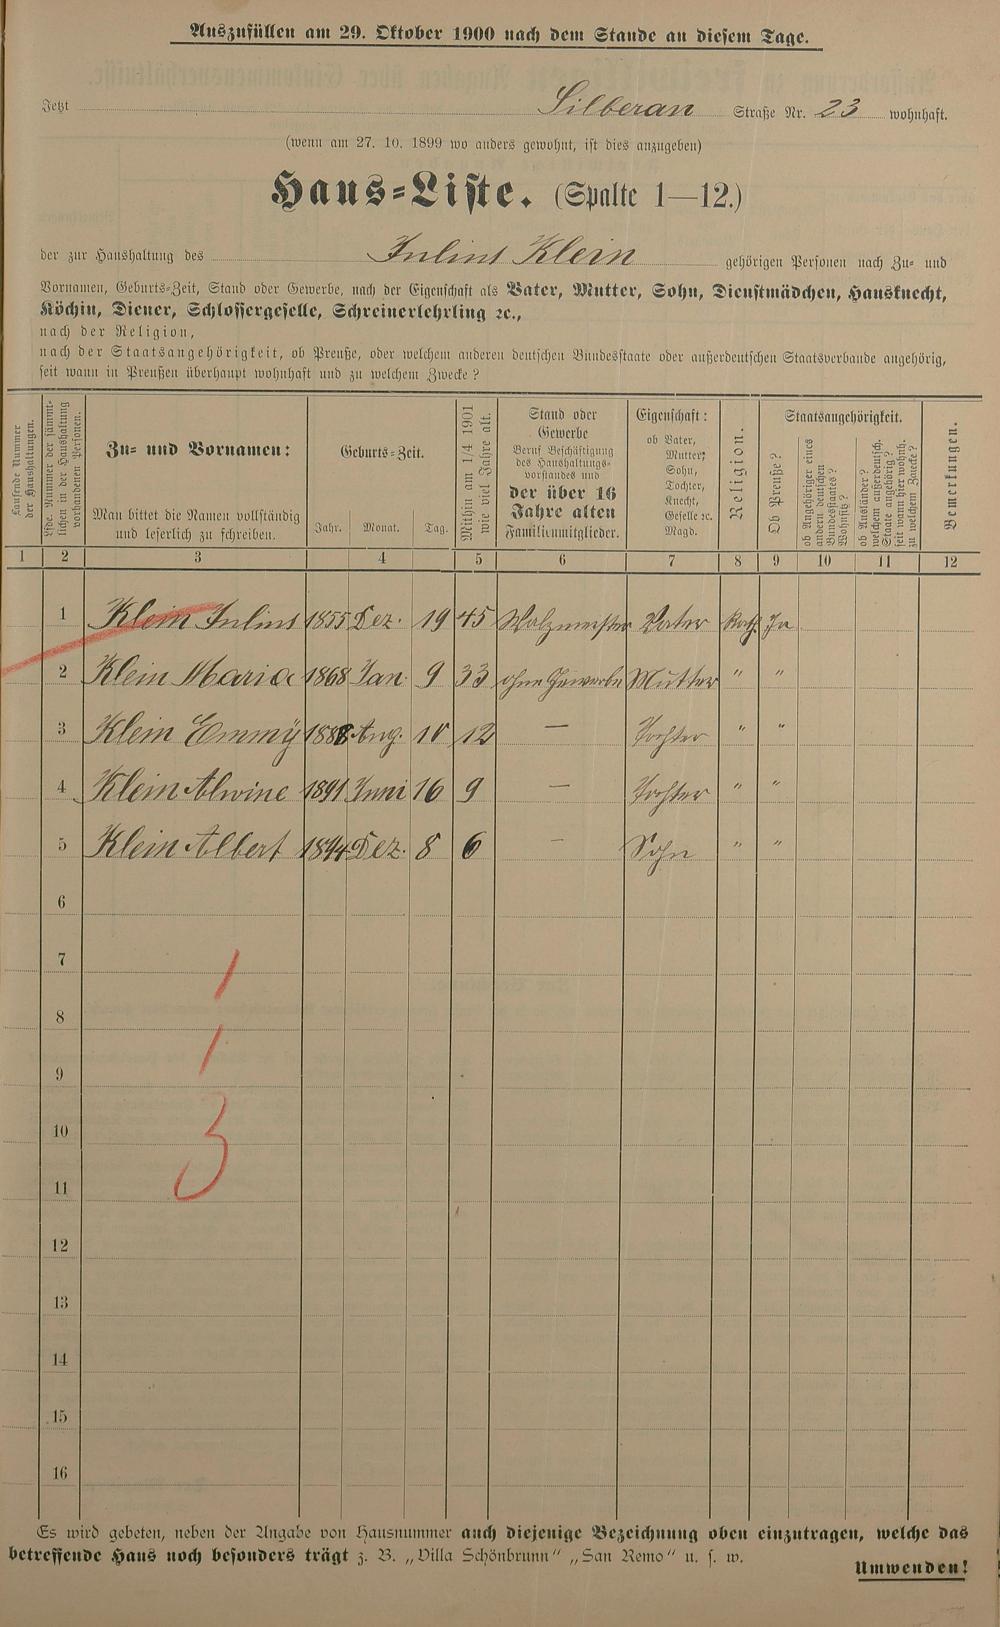 Auszufüllen am 29. Oktober 1900 nach dem Stande an diesem Tage.
Jetzt Silberau Straße Nr. 23 wohnhaft.
(wenn am 27. 10. 1899 wo anders gewohnt, ist dies anzugeben)
Haus-Liste. (Spalte 1—12.)
der zur Haushaltung des Julius Klein gehörigen Personen nach Zu- und
Vornamen, Geburts-Zeit, Stand oder Gewerbe, nach der Eigenschaft als Vater, Mutter, Sohn, Dienstmädchen, Hausknecht,
Köchin, Diener, Schlossergeselle, Schreinerlehrling ꝛc.,
nach der Religion,
nach der Staatsangehörigkeit, ob Preuße, oder welchem anderen deutschen Bundesstaate oder außerdeutschen Staatsverbande angehörig,
seit wann in Preußen überhaupt wohnhaft und zu welchem Zwecke?
Laufende Nummer
der Haushaltungen.
Lfde. Nummer der sämmt-
lichen in der Haushaltung
vorhandenen Personen.
Zu- und Vornamen:
Man bittet die Namen vollständig
und leserlich zu schreiben.
Geburts-Zeit.
Jahr. Monat. Tag.
Mithin am 1/4 1901
wie viel Jahre alt.
Stand oder
Gewerbe
Beruf Beschäftigung
des Haushaltungs-
vorstandes und
der über 16
Jahre alten
Familienmitglieder.
Eigenschaft:
ob Vater,
Mutter,
Sohn,
Tochter,
Knecht,
Geselle ꝛc.
Magd.
Religion.
Staatsangehörigkeit.
Ob Preuße?
ob Angehöriger eines
andern deutschen
Bundesstaates?
Wohnsitz?
ob Ausländer?
welchem außerdeutsch.
Staate angehörig?
seit wann hier wohnh.
zu welchem Zwecke?
Bemerkungen.
1 2 3 4 5 6 7 8 9 10 11 12
1 Klein Julius 1855 Dez. 19 45 Walzmeister Vater Kath. Ja
2 Klein Maria 1868 Jan. 9 33 ohne Gewerbe Mutter " "
3 Klein Emmy 1888 Aug. 10 12 — Tochter " "
4 Klein Alwine 1891 Juni 16 9 — Tochter " "
5 Klein Albert 1894 Dez. 8 6 — Sohn " "
6
7
1
8
1
9
10
3
11
12
13
14
15
16
Es wird gebeten, neben der Angabe von Hausnummer auch diejenige Bezeichnung oben einzutragen, welche das
betreffende Haus noch besonders trägt z. B. „Villa Schönbrunn" „San Remo" u. s. w.
Umwenden!